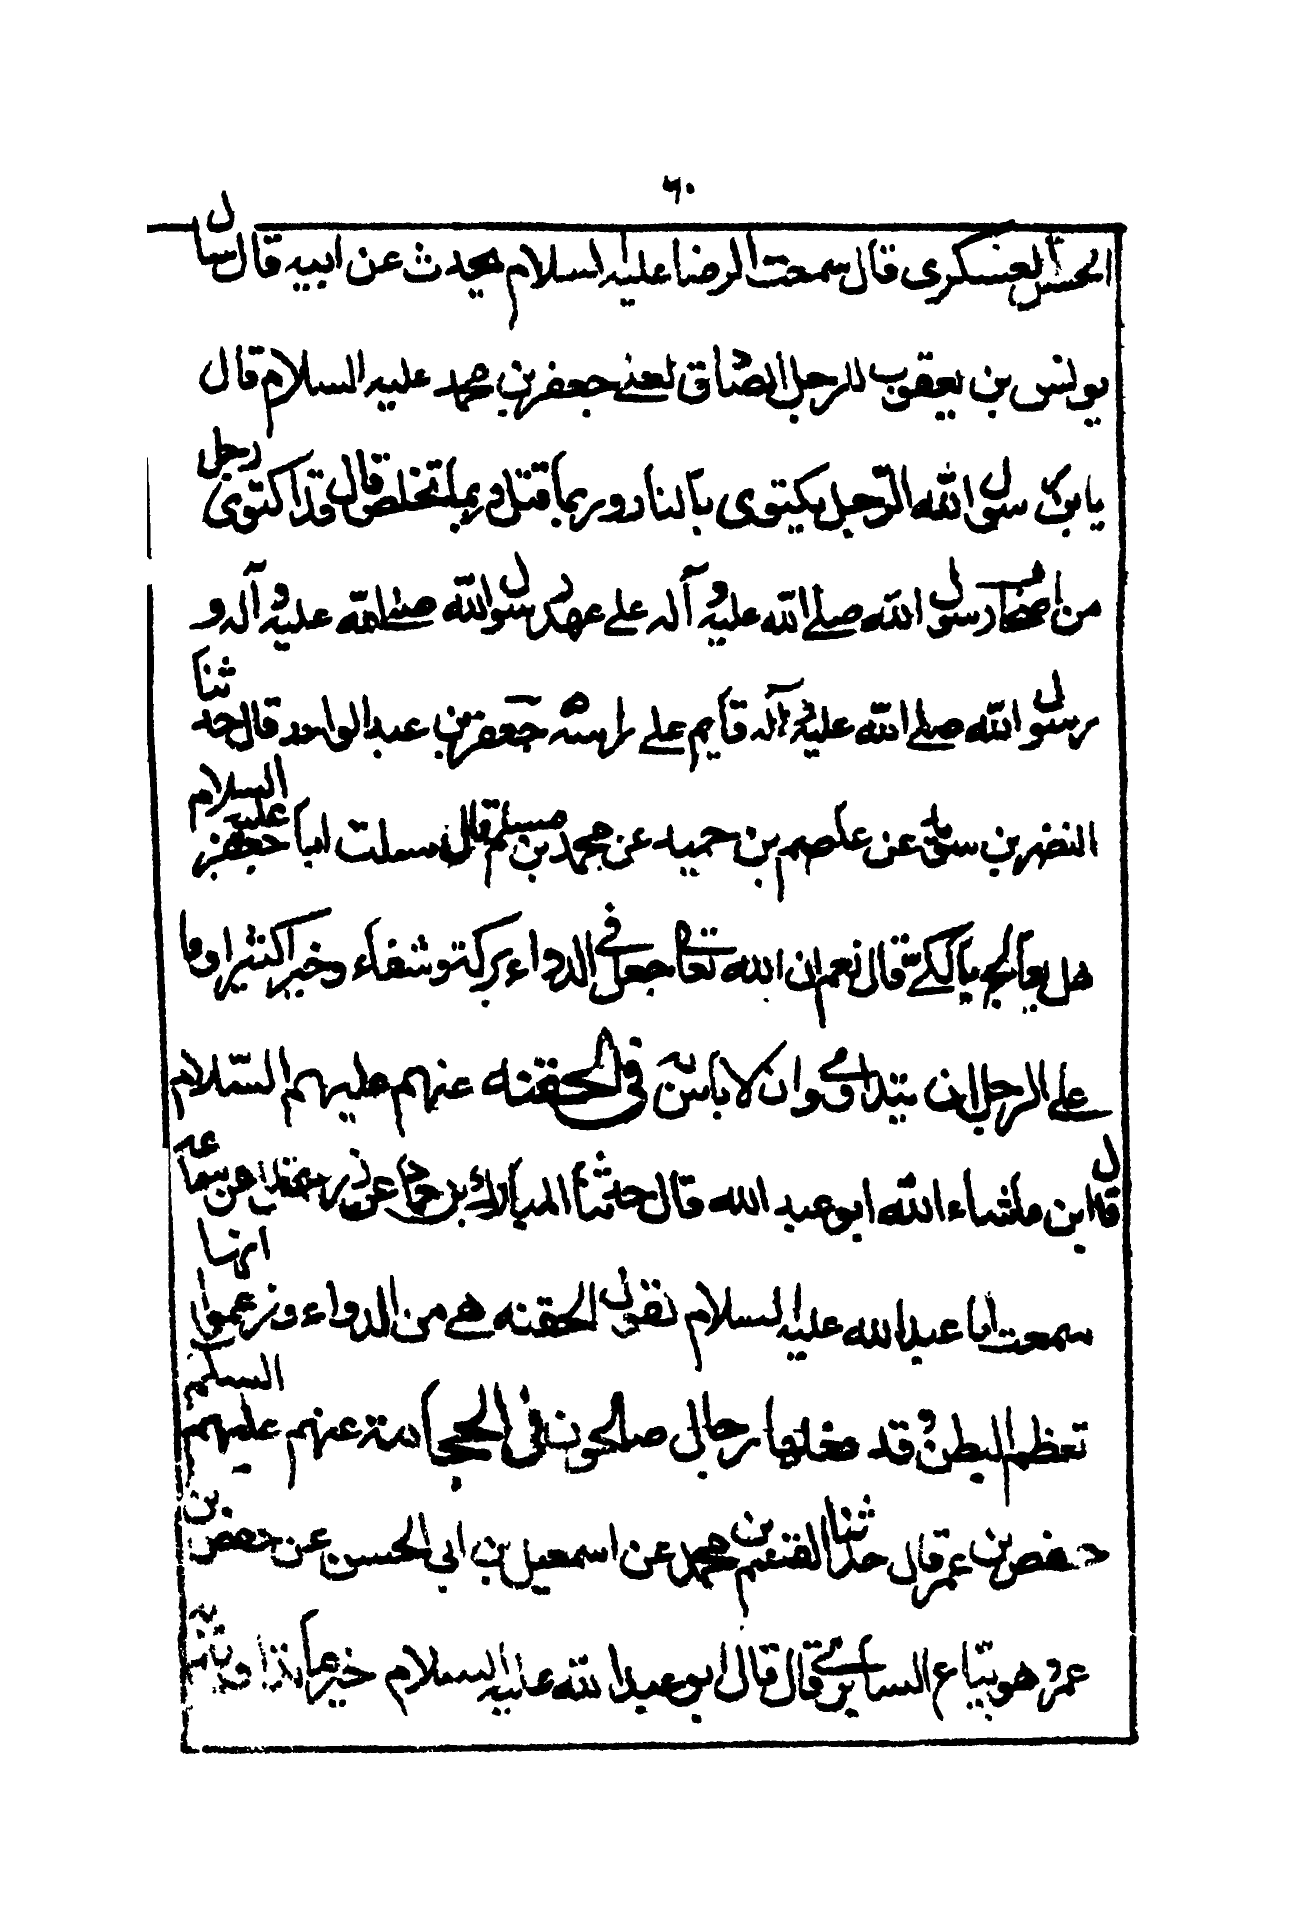 ٦٠
الحسن العسكرى قال سمعت الرضا عليه السلام يحدث عن ابيه قال سال
يونس بن يعقوب للرجل الصادق يعنے جعفر بن محمد عليه السلام قال
يا بن رسول الله الرجل يكتوى بالنار وربما قتل وربما تخلص قال قد اكتوى رجل
من اصحاب رسول الله صلے الله عليه وآله علے عهد رسول الله صلے الله عليه وآله و
رسول الله صلے الله عليه وآله قايم علے راسه جعفر بن عبد الواحد قال حدثنا
النضر بن سويد عن عاصم بن حميد عن محمد بن مسلم قال سالت ابا جعفر عليه السلام
هل يعالج بالكے قال نعم ان الله تعالے جعل فے الدواء بركة وشفاء وخيرا كثيرا وما
علے الرجل ان يتداوے وان لا باس به فى الحقنه عنهم عليهم السلام
قال ابن ماشاء الله ابو عبد الله قال حدثنا المبارك بن حماد عن زرعة عن سماعه
سمعت ابا عبد الله عليه السلام يقول الحقنه هے من الدواء وزعموا انها
تعظم البطن وقد فعلها رجال صالحون فى الحجامة عنهم عليهم السلم
حفص بن عمر قال حدثنا القسم بن محمد عن اسمعيل بن ابى الحسن عن حفص بن
عمر وهو بياع السابرے قال قال ابو عبد الله عليه السلام خير ما